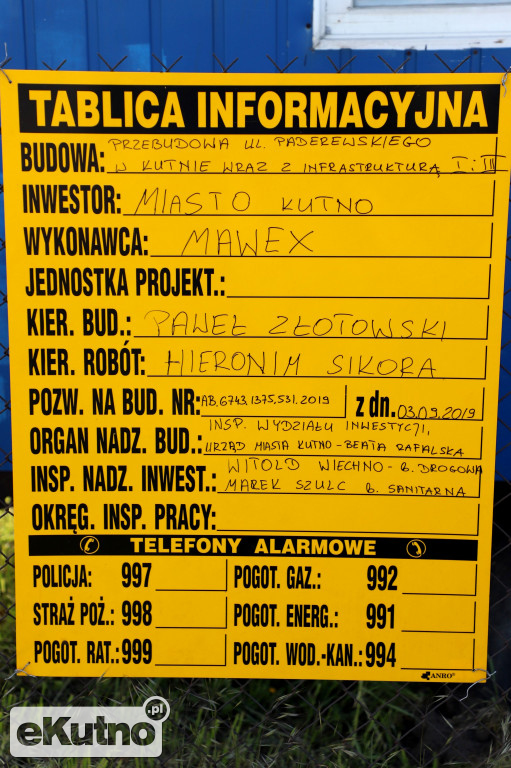 TABLICA INFORMACYJNA
BUDOWA: PRZEBUDOWA UL. PADEREWSKIEGO
W KUTNIE WRAZ Z INFRASTRUKTURĄ I i II
INWESTOR: MIASTO KUTNO
WYKONAWCA: MAWEX
JEDNOSTKA PROJEKT.:
KIER. BUD.: PAWEŁ ZŁOTOWSKI
KIER. ROBÓT: HIERONIM SIKORA
POZW. NA BUD. NR: AB.6743.1375,531.2019 z dn. 03.09.2019
ORGAN NADZ. BUD.: INSP. WYDZIAŁU INWESTYCJI,
URZĄD MIASTA KUTNO - BEATA RAFALSKA
INSP. NADZ. INWEST.: WITOLD WIECHNO - B. DROGOWA
MAREK SZULC B. SANITARNA
OKRĘG. INSP. PRACY:
TELEFONY ALARMOWE
POLICJA: 997 POGOT. GAZ.: 992
STRAŻ POŻ.: 998 POGOT. ENERG.: 991
POGOT. RAT.: 999 POGOT. WOD.-KAN.: 994
ANRO
eKutno.pl